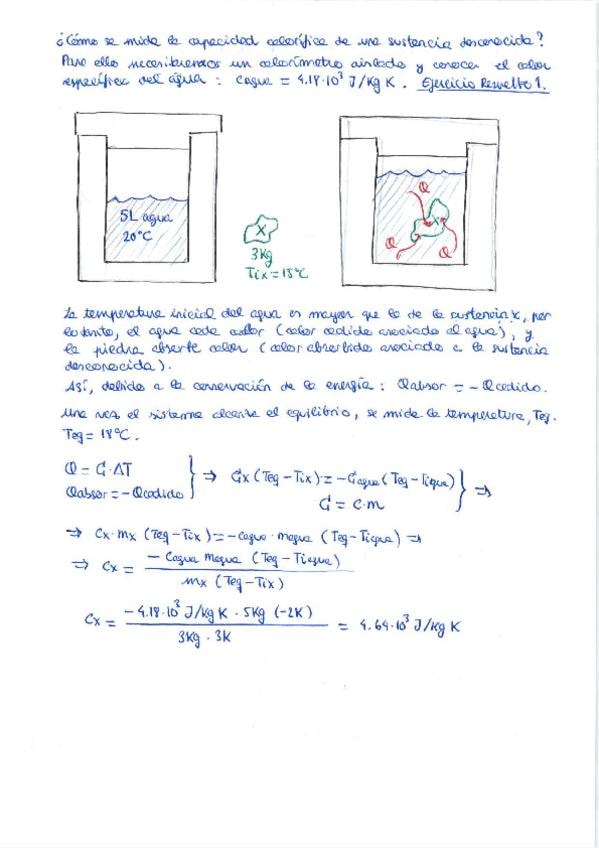 ¿Cómo se mide la capacidad calorífica de una sustancia desconocida?
Para ello necesitaremos un calorímetro aislado y conocer el calor
específico del agua: Cagua = 4.18·10³ J/Kg K. Ejercicio Resuelto 1.
5L agua
20°C
X
3Kg
Tix = 15°C
Q
X
Q
Q
La temperatura inicial del agua es mayor que la de la sustancia x, por
lo tanto, el agua cede calor (calor cedido asociado al agua), y
la piedra absorbe calor (calor absorbido asociado a la sustancia
desconocida).
Así, debido a la conservación de la energía: Qabsor = -Qcedido.
Una vez el sistema alcanza el equilibrio, se mide la temperatura, Teq.
Teq = 18°C.
Q = C·ΔT
Qabsor = -Qcedido } ⇒ Cx (Teq - Tix) = -Cagua (Teq - Tiagua)
C = c·m } ⇒
⇒ Cx·mx (Teq - Tix) = -cagua·magua (Teq - Tiagua) ⇒
⇒ Cx = -Cagua magua (Teq - Tiagua)
mx (Teq - Tix)
Cx = -4.18·10³ J/Kg K · 5Kg (-2K) = 4.64·10³ J/Kg K
3Kg · 3K